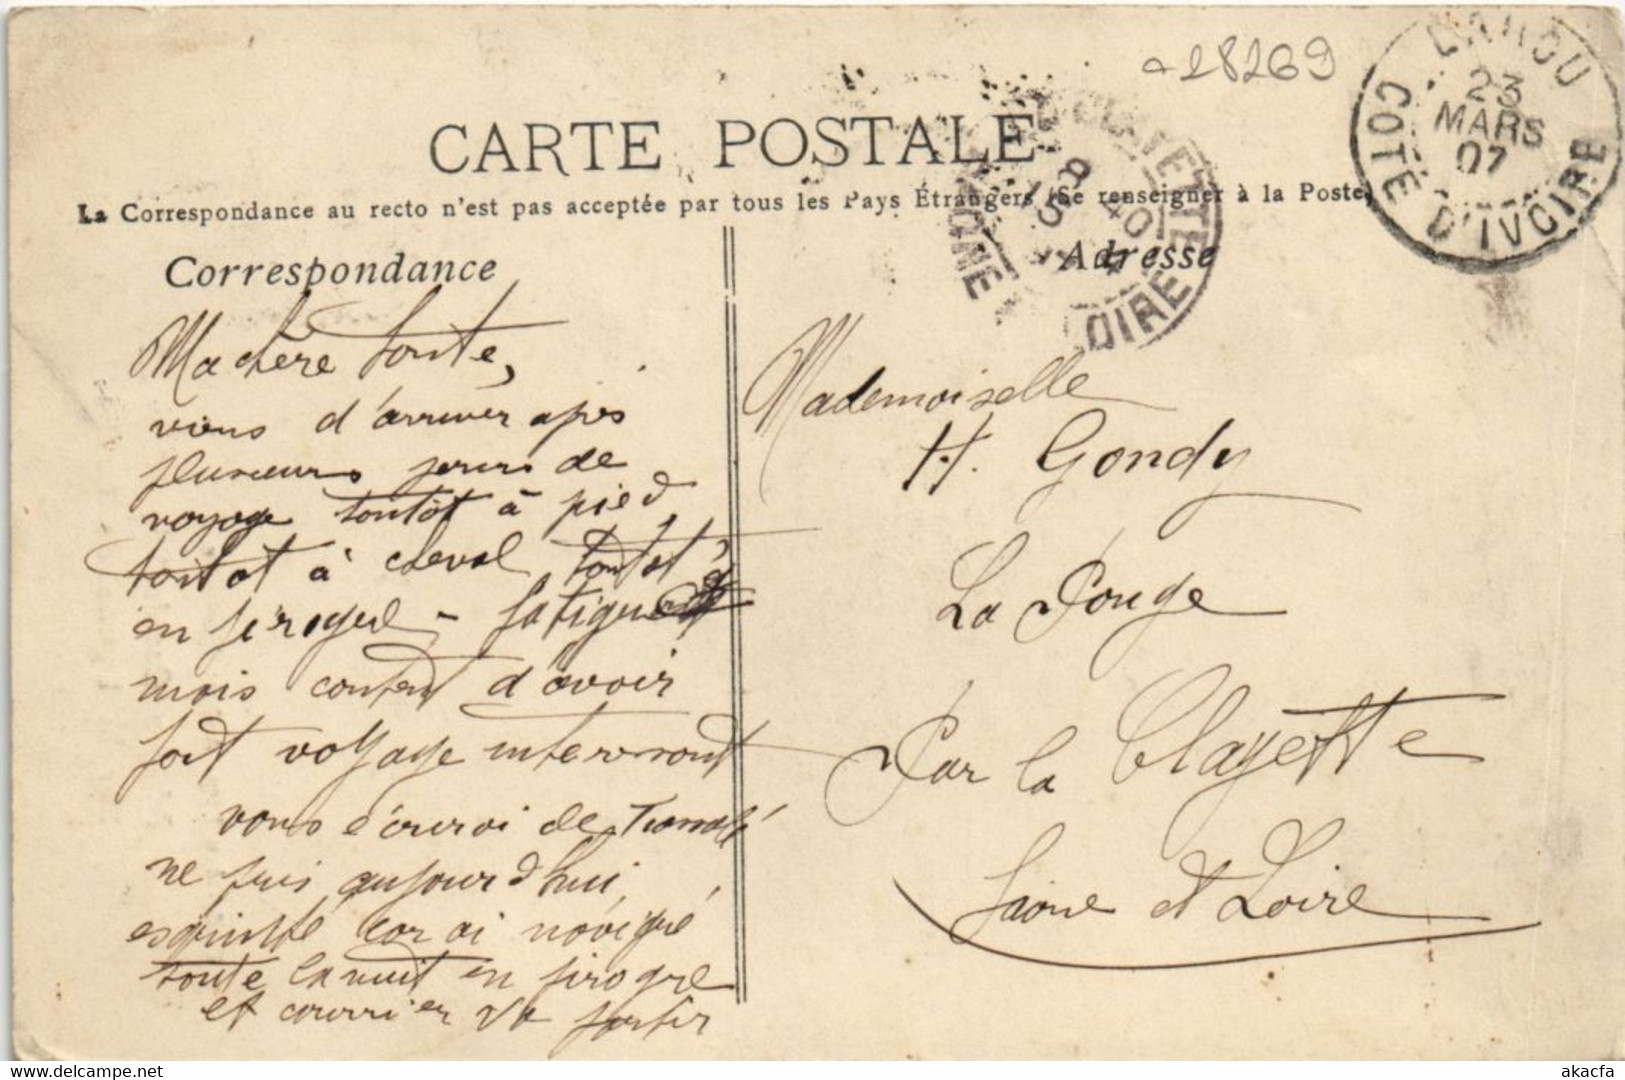 a 28269
CARTE POSTALE
La Correspondance au recto n'est pas acceptée par tous les Pays Étrangers (Se renseigner à la Poste)
LAHOU
23
MARS
07
COTE D'IVOIRE
8
40
OIRE
Correspondance
Ma chère
viens d'arriver après
plusieurs jours de
voyage tantôt à pied
tantot à cheval tantot
en pirogue - fatigué
mais content d'avoir
fait voyage interessant
vous écrirai de
ne puis aujourd'hui,
esquinté car ai navigué
toute la nuit en pirogue
et courrier va partir
Adresse
Mademoiselle
H. Gondy
La Rouge
Par la Clayette
Saone et Loire
akacfa